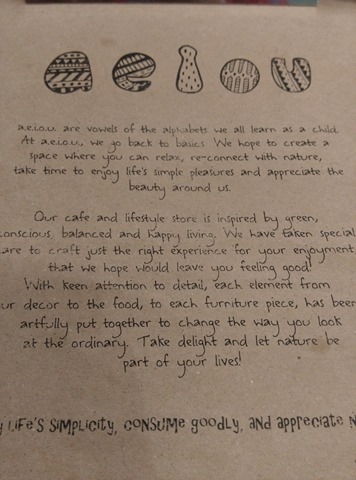 a e i o u
a.e.i.o.u. are vowels of the alphabets we all learn as a child.
At a.e.i.o.u., we go back to basics. We hope to create a
space where you can relax, re-connect with nature,
take time to enjoy life's simple pleasures and appreciate the
beauty around us.
Our cafe and lifestyle store is inspired by green,
conscious, balanced and happy living. We have taken special
care to craft just the right experience for your enjoyment
that we hope would leave you feeling good!
With keen attention to detail, each element from
our decor to the food, to each furniture piece, has been
artfully put together to change the way you look
at the ordinary. Take delight and let nature be
part of your lives!
LIFE'S SIMPLICITY, CONSUME GOODLY, AND APPRECIATE